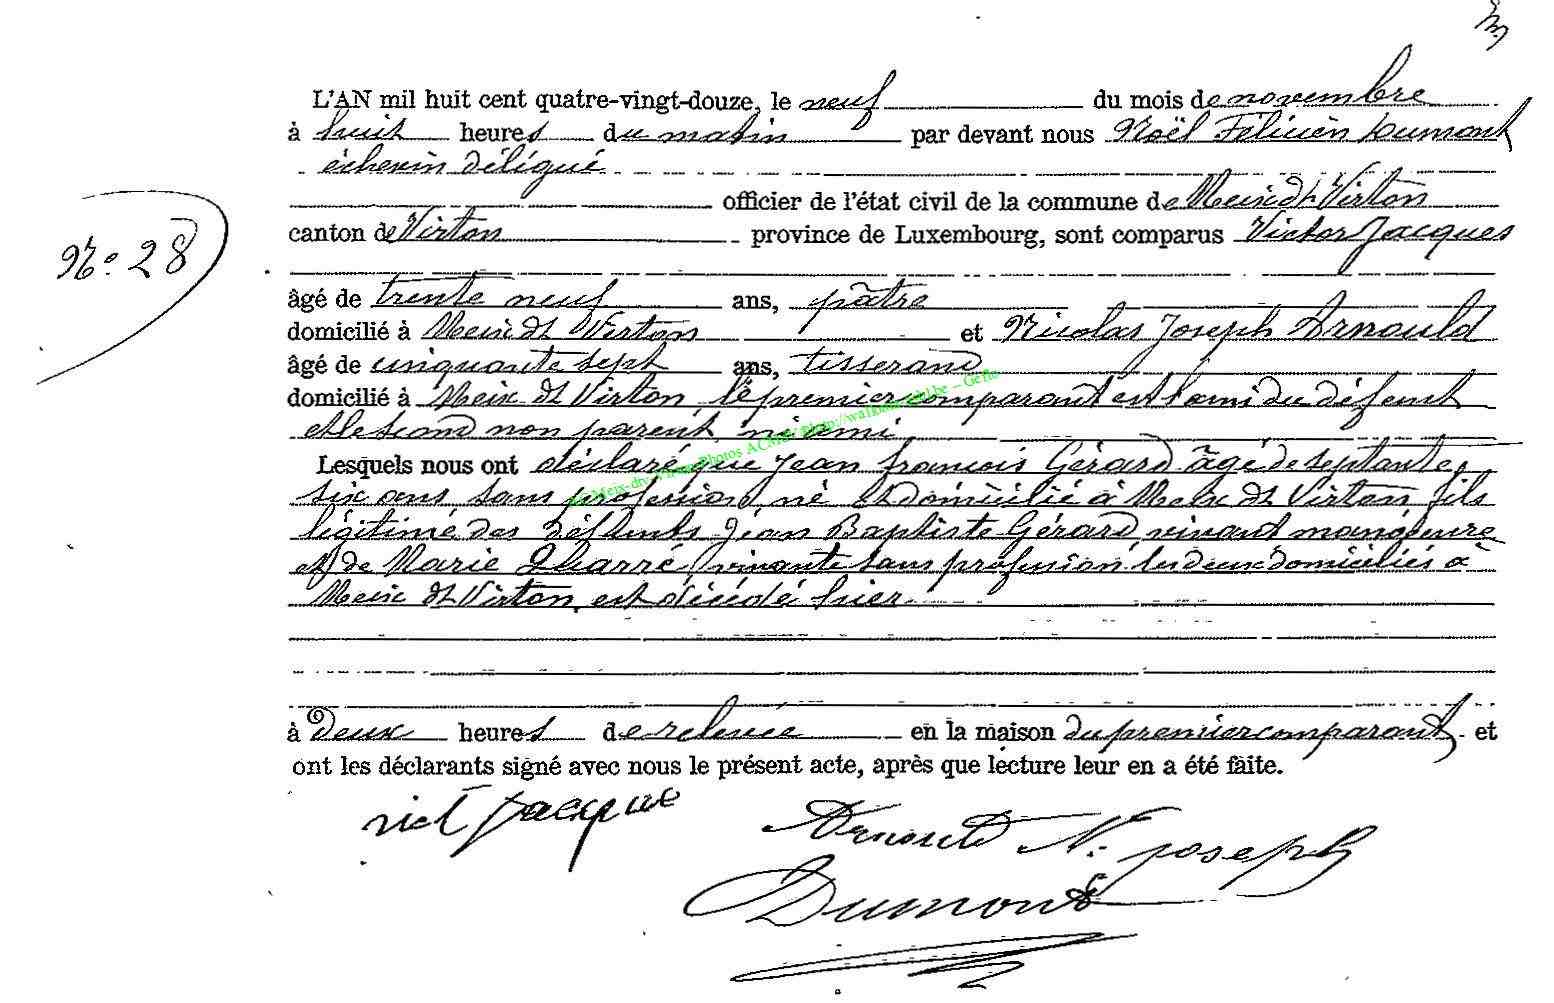 L'AN mil huit cent quatre-vingt-douze, le neuf du mois de novembre
à huit heures du matin par devant nous Noël Félicien Dumont
échevin délégué
officier de l'état civil de la commune de Meix dt Virton
N° 28
canton de Virton province de Luxembourg, sont comparus Victor Jacques
âgé de trente neuf ans, pâtre
domicilié à Meix dt Virton et Nicolas Joseph Arnould
âgé de cinquante sept ans, tisserand
domicilié à Meix dt Virton, le premier comparant est l'ami du défunt
et le second non parent ni ami
Lesquels nous ont déclaré que Jean françois Gérard âgé de septante
six ans sans profession, né et domicilié à Meix dt Virton, fils
légitime des défunts Jean Baptiste Gérard vivant manoeuvre
et de Marie vivante sans profession, les deux domiciliés à
Meix dt Virton, est décédé hier
à deux heures de relevée en la maison du premier comparant, et
ont les déclarants signé avec nous le présent acte, après que lecture leur en a été faite.
vict Jacque
Arnould N. joseph
Dumont